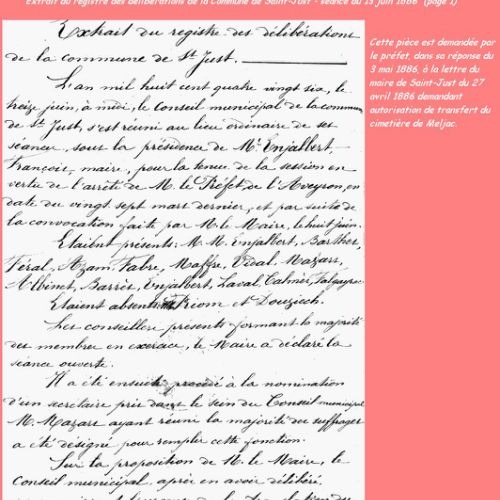 Extrait du registre des délibérations de la Commune de Saint-Just - séance du 13 juin 1886 (page 1)
Extrait du registre des délibérations
de la commune de St Just.
L'an mil huit cent quatre vingt six, le
treize juin, à midi, le Conseil municipal de la commune
de St Just, s'est réuni au lieu ordinaire de ses
séances, sous la présidence de Mr Enjalbert,
François, maire, pour la tenue de la session en
vertu de l'arrêté de M. le Préfet de l'Aveyron, en
date du vingt sept mars dernier, et par suite de
la convocation faite par M. le Maire, le huit juin.
Etaient présents: M. M. Enjalbert, Barthes,
Féral, Azam, Fabre, Maffre, Vidal, Mazars,
Albinet, Barrès, Enjalbert, Laval, Calmès, Falguyrac
Etaient absents Riom et Douziech.
Les conseillers présents formant la majorité
des membres en exercice, le Maire a déclaré la
séance ouverte.
Il a été ensuite procédé à la nomination
d'un secrétaire pris dans le sein du Conseil municipal
M. Mazars ayant réuni la majorité des suffrages
a été désigné pour remplir cette fonction.
Sur la proposition de M. le Maire, le
Conseil municipal, après en avoir délibéré,
Cette pièce est demandée par
le préfet, dans sa réponse du
3 mai 1886, à la lettre du
maire de Saint-Just du 27
avril 1886 demandant
autorisation de transfert du
cimetière de Meljac.